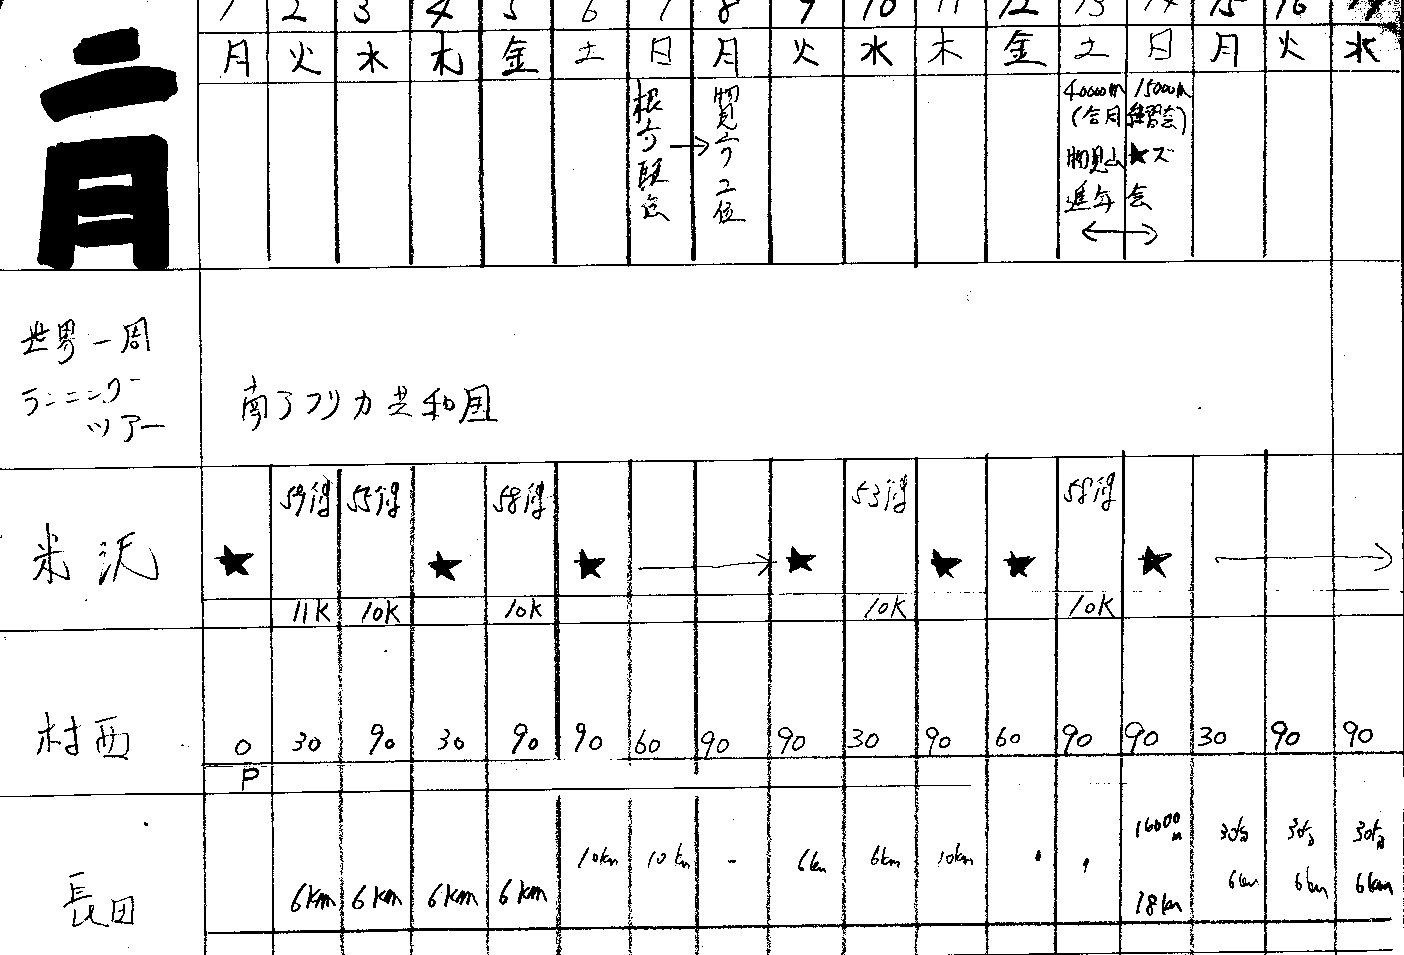 二月
1 2 3 4 5 6 7 8 9 10 11 12 13 14 15 16 17
月 火 水 木 金 土 日 月 火 水 木 金 土 日 月 火 水
40000m 15000m
(合同 練習会)
世界一周
ランニング
ツアー
南アフリカ共和国
米沢
59分 55分 58分 53分 58分
★ ★ ★ → ★ ★ ★ ★ →
11K 10K 10K 10K 10K
村西
0 30 90 30 90 90 60 90 90 30 90 60 90 90 30 90 90
P
長田
16000m 30分 30分 30分
10km 10km - 6km 6km 10km
6km 6km 6km 6km 18km 6km 6km 6km